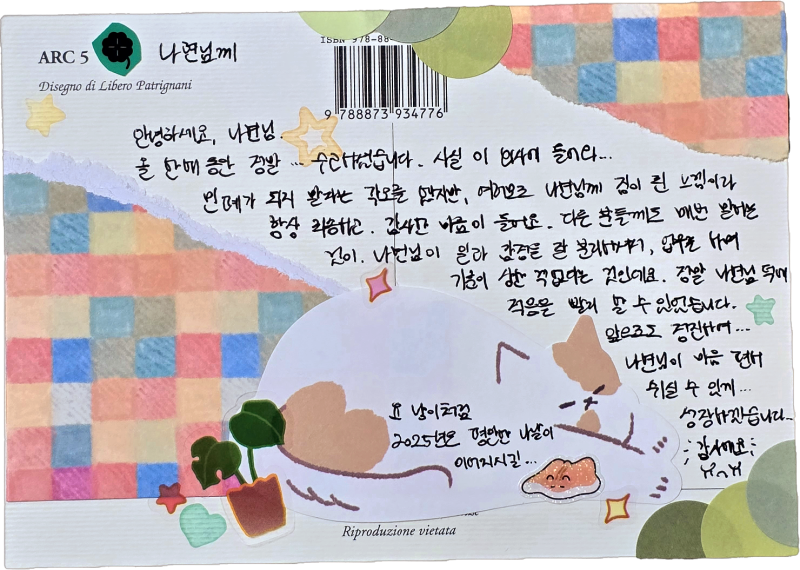 ISBN 978-88
ARC 5
나연님께
Disegno di Libero Patrignani
9 788873 934776
안녕하세요, 나연님.
올 한해 동안 정말 … 수고하셨습니다. 사실 이 회사에 들어와…
민폐가 되지 말자는 각오를 했지만, 여러모로 나연님께 짐이 된 느낌이라
항상 죄송하고. 감사한 마음이 들어요. 다른 분들께도 매번 말하는
건이. 나연님이 일과 감정을 잘 분리하시기, 업무로 하여
기분이 상한 적 없다는 것인데요. 정말 나연님 덕에
적응을 빨리 할 수 있었습니다.
앞으로도 정진하여…
나연님이 마음 편히
쉬실 수 있게…
성장하겠습니다…
감사해요
요 냥이처럼
2025년도 평안한 나날이
이어지시길…
Riproduzione vietata